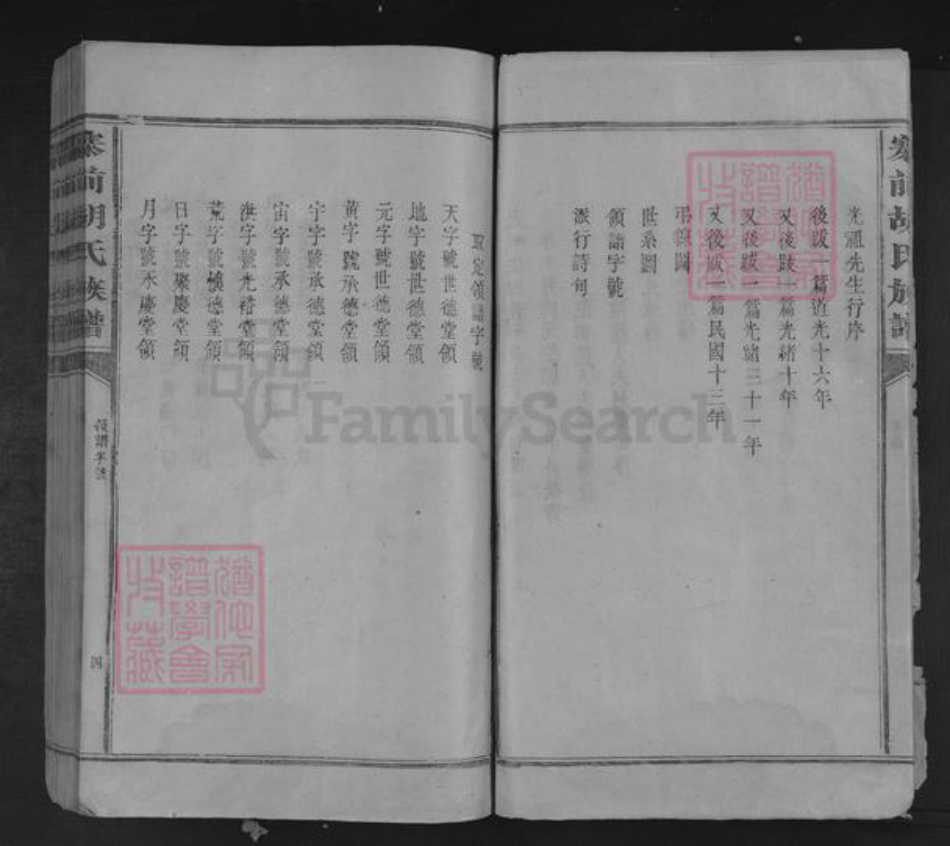 前胡氏族譜
光祖先生行序
後跋一篇道光十六年
又後跋一篇光緒十年
又後跋一篇光緒三十一年
又後跋一篇民國十三年
世系圖
領譜字號
派行詩句
取定領譜字號
天字號世德堂領
地字號世德堂領
元字號世德堂領
黃字號承德堂領
宇字號承德堂領
宙字號承德堂領
洪字號光裕堂領
荒字號懷德堂領
日字號聚慶堂領
月字號承慶堂領
前胡氏族譜
領譜字號
四
譜學會
收藏
FamilySearch